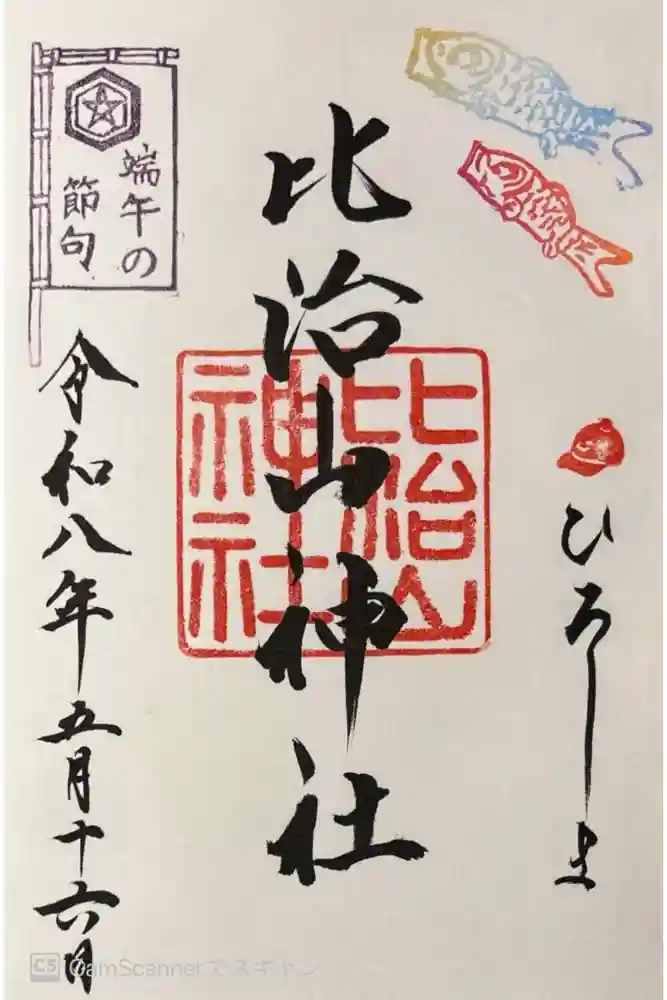 ひろしま
比治山神社
比治山
神社
端午の
節句
令和八年五月十六日
CS CamScannerでスキャン